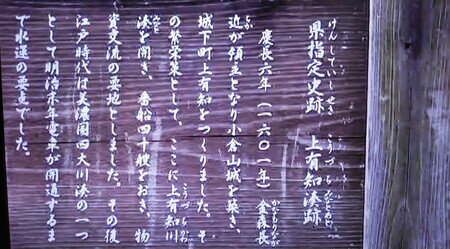 けんしていしせき こうづちみなとあと
県指定史跡 上有知湊跡
慶長六年(一六〇一年)金森長
近が領主となり小倉山城を築き、
城下町上有知をつくりました。そ
の繁栄策として、ここに上有知川
湊を開き、番船四十艘をおき、物
資交流の要地としました。その後
江戸時代は美濃国四大川湊の一つ
として明治末年電車が開通するま
で水運の要点でした。